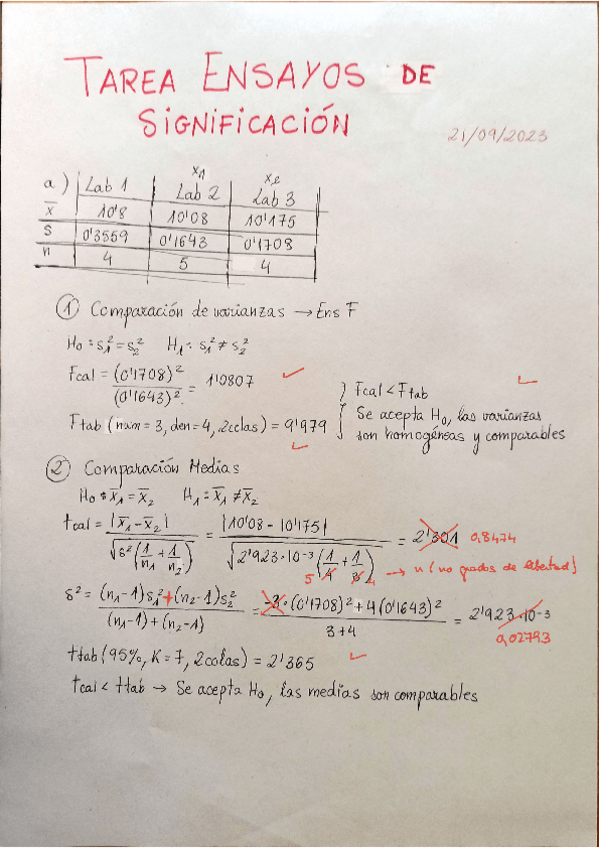 TAREA ENSAYOS DE
SIGNIFICACIÓN
21/09/2023
x1 x2
a) Lab 1 Lab 2 Lab 3
x̄ 10'8 10'08 10'175
S 0'3559 0'1643 0'1708
n 4 5 4
① Comparación de varianzas → Ens F
H0 = s1² = s2² H1 = s1² ≠ s2²
Fcal = (0'1708)² / (0'1643)² = 1'0807
Ftab (num = 3, den = 4, 2colas) = 9'979
} Fcal < Ftab
Se acepta H0, las varianzas
son homogéneas y comparables
② Comparación Medias
H0 = x̄1 = x̄2 H1 = x̄1 ≠ x̄2
tcal = |x̄1 - x̄2| / √(s² (1/n1 + 1/n2)) = |10'08 - 10'175| / √(2'923·10⁻³ (1/4 + 1/3)) = 2'301 0,8474
5 4 → n (no grados de libertad)
s² = (n1-1)s1² + (n2-1)s2² / (n1-1) + (n2-1) = -3·(0'1708)² + 4(0'1643)² / 3+4 = 2'923·10⁻³
0,02793
ttab (95%, K = 7, 2colas) = 2'365
tcal < ttab → Se acepta H0, las medias son comparables